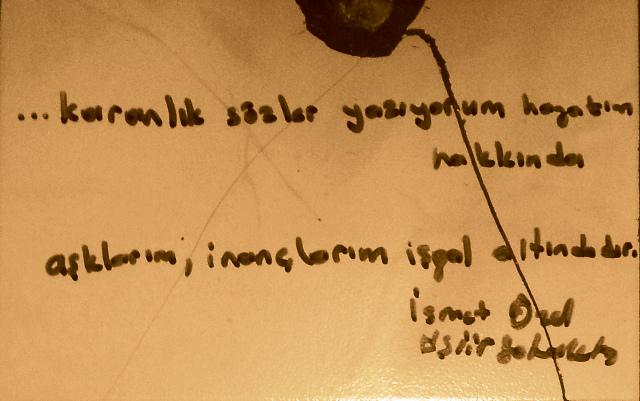 ... karanlık sözler yazıyorum hayatım
hakkında
aşklarım, inançlarım işgal altındadır.
İsmet Özel